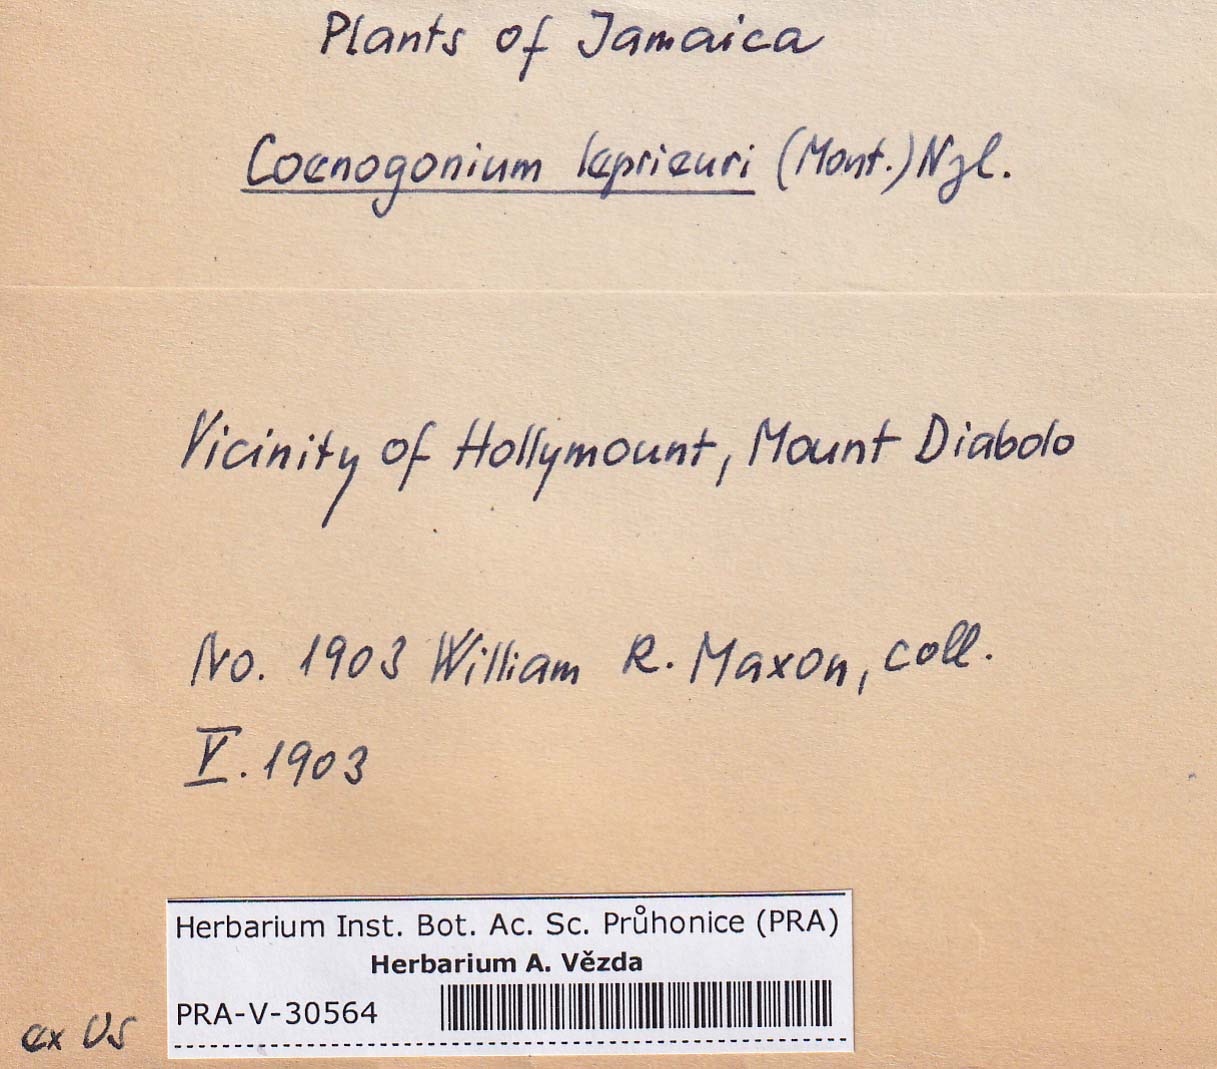 Plants of Jamaica
Coenogonium leprieuri (Mont.) Nyl.
Vicinity of Hollymount, Mount Diabolo
No. 1903 William R. Maxon, coll.
V. 1903
Herbarium Inst. Bot. Ac. Sc. Průhonice (PRA)
Herbarium A. Vězda
PRA-V-30564
ex US